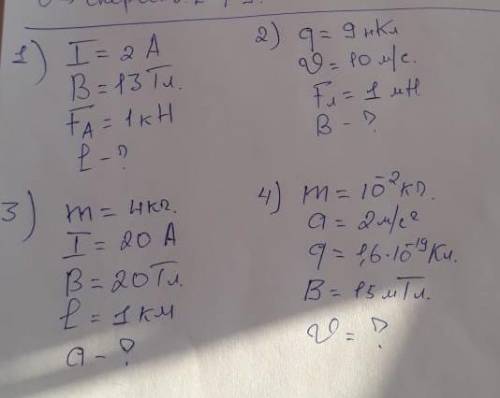 1) I = 2 A
B = 13 Тл.
FA = 1 кН
ℓ - ?
2) q = 9 нКл
υ = 10 м/с.
Fл = 1 мН
B - ?
3) m = 4 кг.
I = 20 A
B = 20 Тл.
ℓ = 1 км
a - ?
4) m = 10⁻² кг.
a = 2 м/с²
q = 1,6·10⁻¹⁹ Кл.
B = 15 мТл.
υ = ?